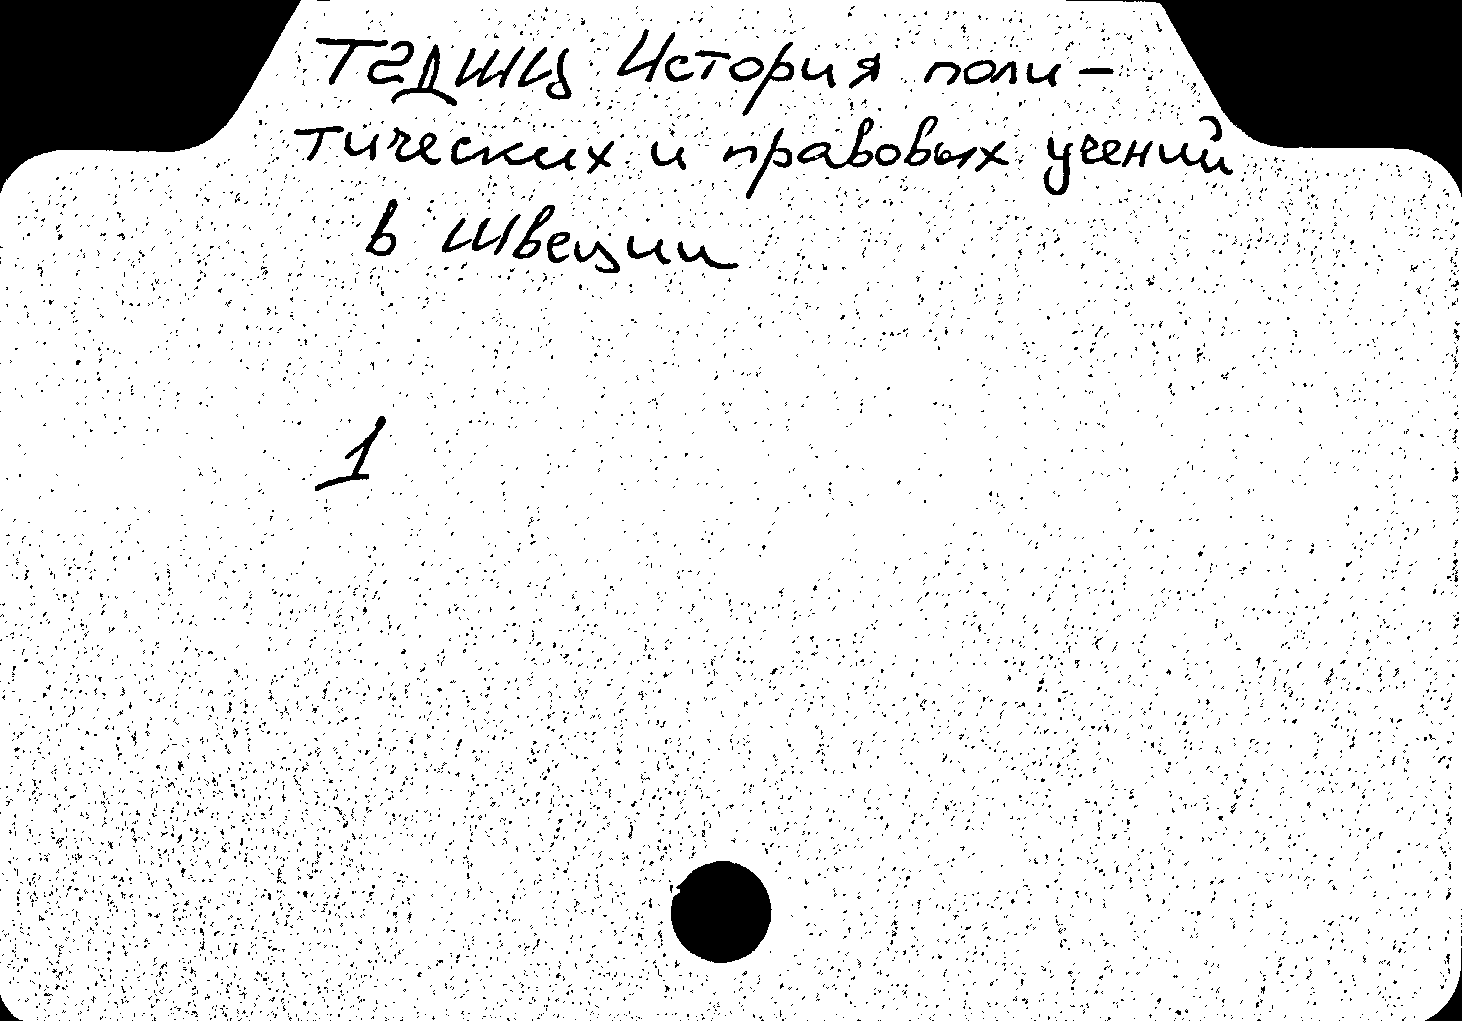 Т2ДШЦ История поли-
тических и правовых учений
в Швеции
1